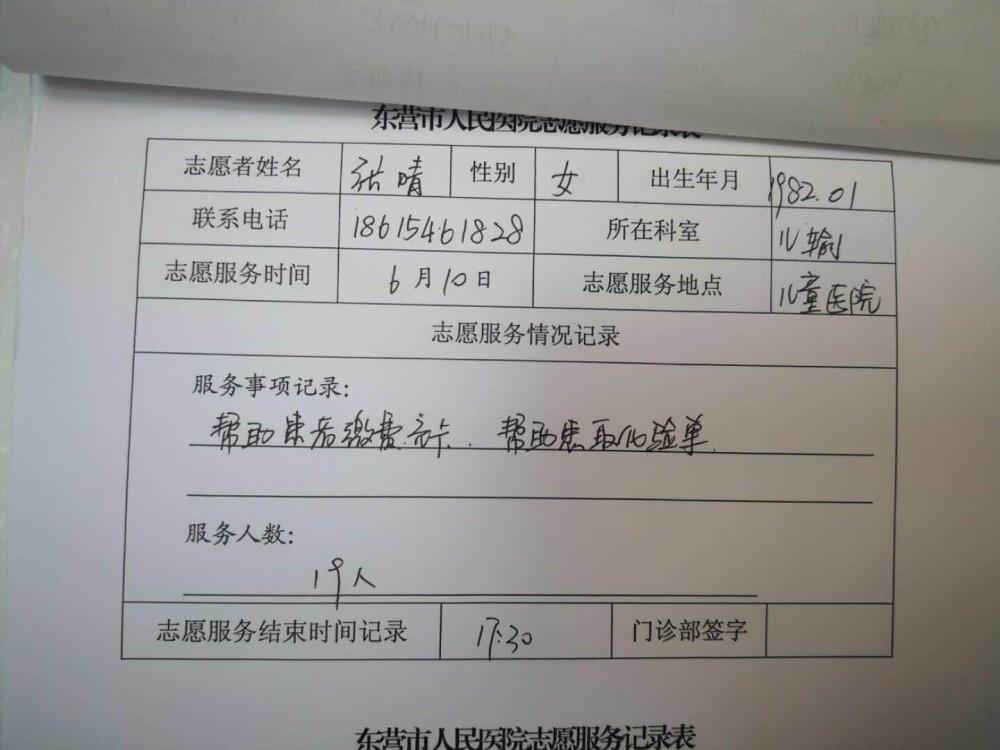 东营市人民医院志愿服务记录表
志愿者姓名 张晴 性别 女 出生年月 1982.01
联系电话 18615461828 所在科室 儿输
志愿服务时间 6月10日 志愿服务地点 儿童医院
志愿服务情况记录
服务事项记录:
帮助患者缴费办卡、帮助患取化验单
服务人数:
19人
志愿服务结束时间记录 17:30 门诊部签字
东营市人民医院志愿服务记录表